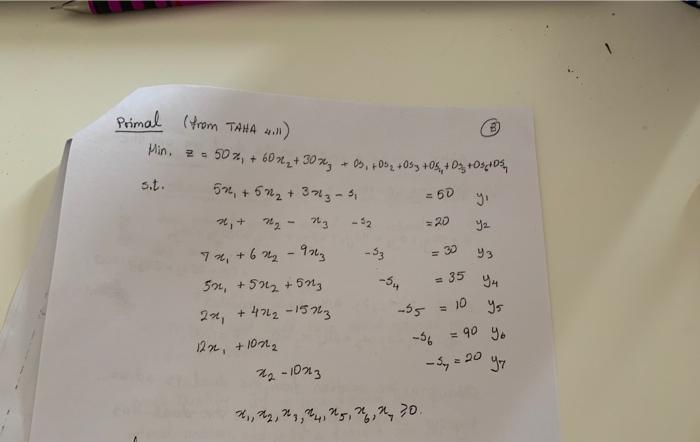 Primal (from TAHA 4.11) B
Min. z = 50x₁ + 60x₂ + 30x₃ + 0s₁ + 0s₂ + 0s₃ + 0s₄ + 0s₅ + 0s₆ + 0s₇
s.t. 5x₁ + 5x₂ + 3x₃ - s₁ = 50 y₁
x₁ + x₂ - x₃ - s₂ = 20 y₂
7x₁ + 6x₂ - 9x₃ - s₃ = 30 y₃
5x₁ + 5x₂ + 5x₃ - s₄ = 35 y₄
2x₁ + 4x₂ - 15x₃ - s₅ = 10 y₅
12x₁ + 10x₂ - s₆ = 90 y₆
x₂ - 10x₃ - s₇ = 20 y₇
x₁, x₂, x₃, x₄, x₅, x₆, x₇ ≥ 0.